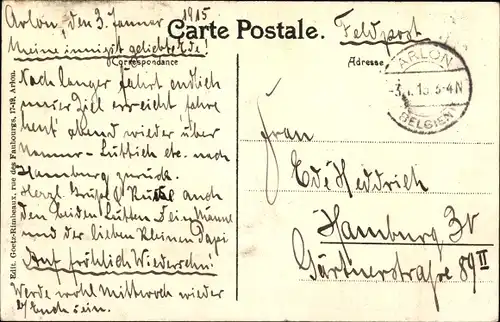 Arlon, den 3. Januar 1915
Meine innigst geliebte Ede!
Carte Postale.
Feldpost
Correspondance
Adresse
ARLON
3. 1. 15 3-4N
BELGIEN
Nach langer Fahrt endlich
unser Ziel erreicht fahre
heut abend wieder über
Namur-Lüttich etc. nach
Hamburg zurück.
Herzl Grüße & Küsse auch
den beiden Lütten
und der lieben kleinen
Auf fröhlich Wiedersehn!
Werde wohl Mittwoch wieder
b/ Euch sein.
Frau
Ede Heddrich
Hamburg 3V
Gärtnerstraße 89 II
Edit. Goetz-Rimbeaux, rue des Faubourgs, 17-19, Arlon.